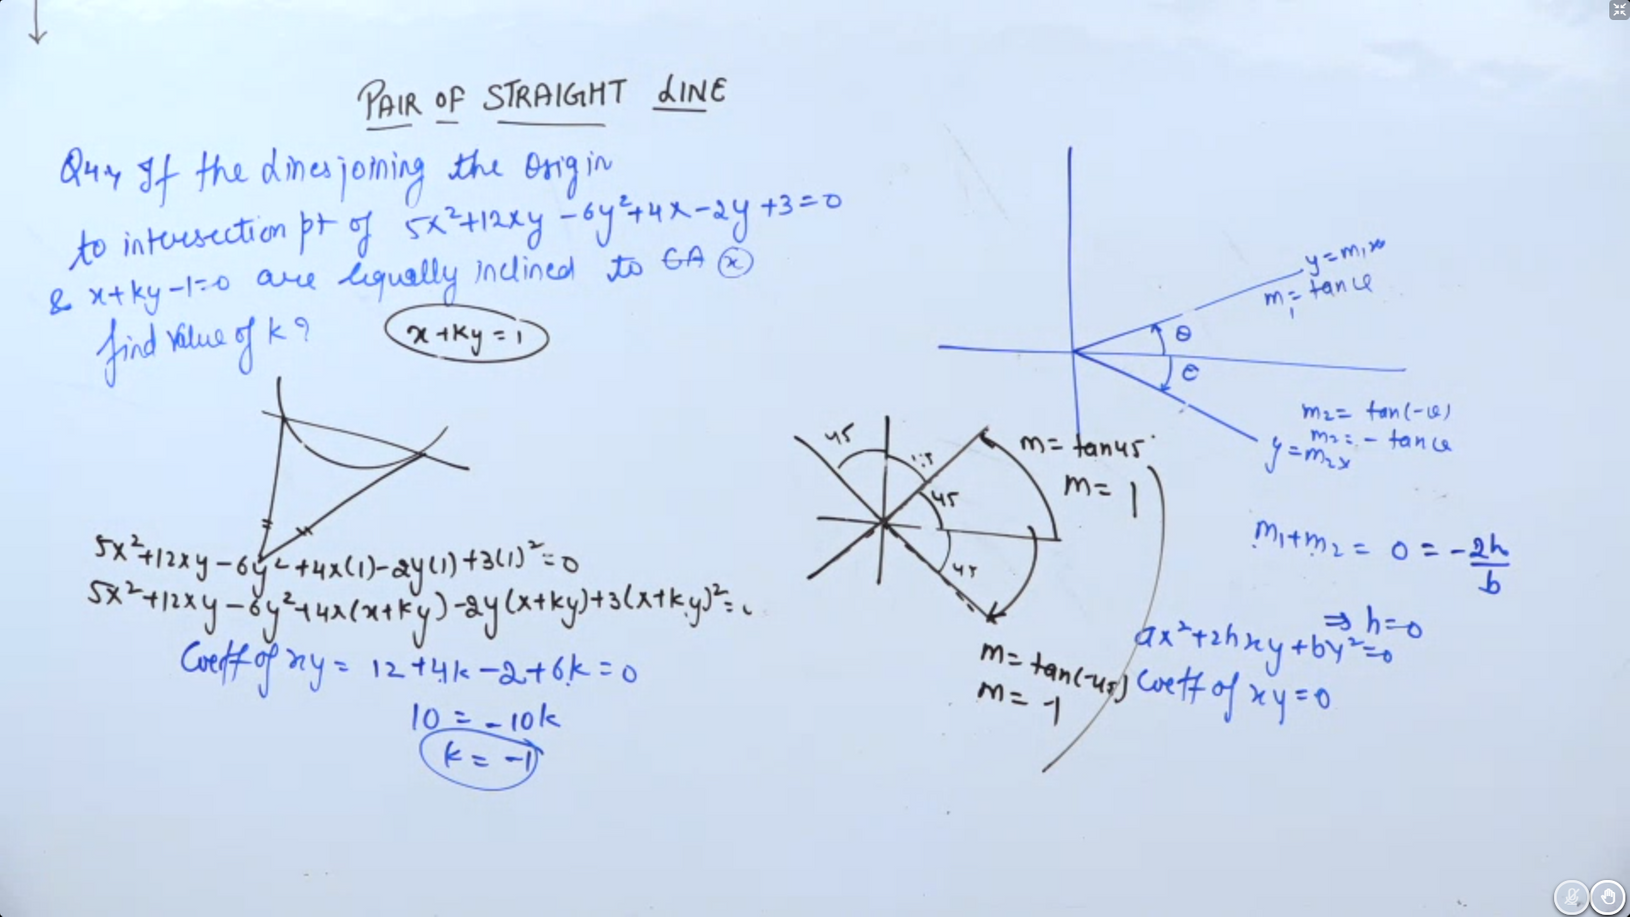 PAIR OF STRAIGHT LINE
Q44 If the Lines joining the Origin
to intersection pt of 5x²+12xy-6y²+4x-2y+3=0
& x+ky-1=0 are equally inclined to CA x
find value of k?
x+ky=1
5x²+12xy-6y²+4x(1)-2y(1)+3(1)²=0
5x²+12xy-6y²+4x(x+ky)-2y(x+ky)+3(x+ky)²=0
Coeff of xy = 12+4k-2+6k=0
10=-10k
k=-1
45
45
45
m=tan45°
m=1
m=tan(-45)
m=-1
y=m₁x
m₁=tanθ
θ
θ
m₂=tan(-θ)
m₂=-tanθ
y=m₂x
m₁+m₂=0=-2h/b
⇒h=0
ax²+2hxy+by²=0
Coeff of xy=0